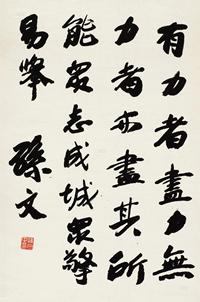 有力者盡力無
力者亦盡其所
能眾志成城眾擎
易舉
孫文